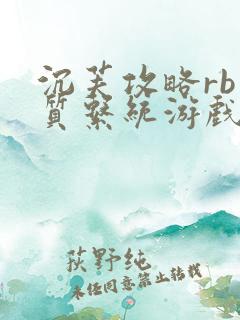 沉芙攻略rb
質繫統游戲
荻野纯
未经同意禁止转载